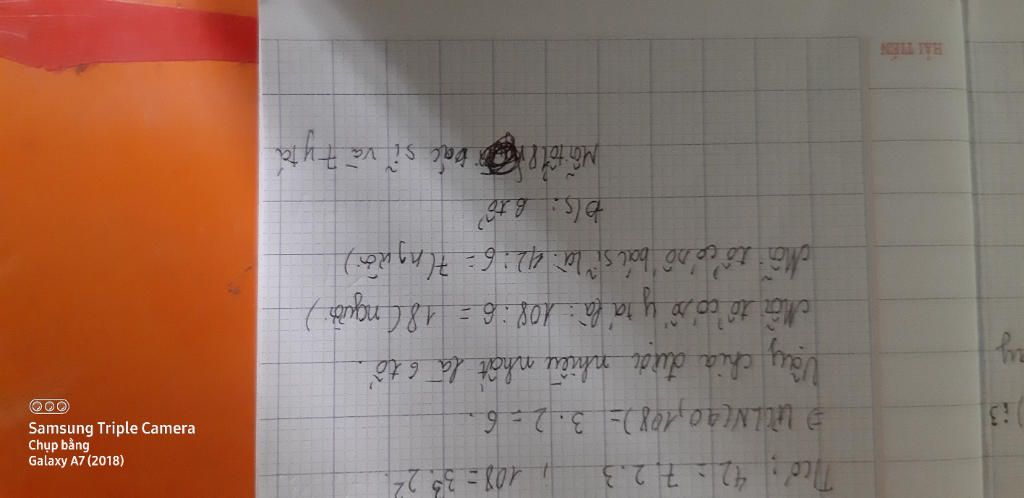 T/có: 42 = 7.2.3 ; 108 = 3³.2².
⇒ ƯCLN(40,108) = 3.2 = 6.
Vậy chia được nhiều nhất là 6 tổ.
Mỗi tổ có số y tá là: 108:6 = 18 (người)
Mỗi tổ có số bác sĩ là: 42:6 = 7 (người)
Đ/s: 6 tổ
Mỗi tổ 18 bác sĩ và 7 y tá
HẢI TIẾN
):3
ay
Samsung Triple Camera
Chụp bằng
Galaxy A7 (2018)